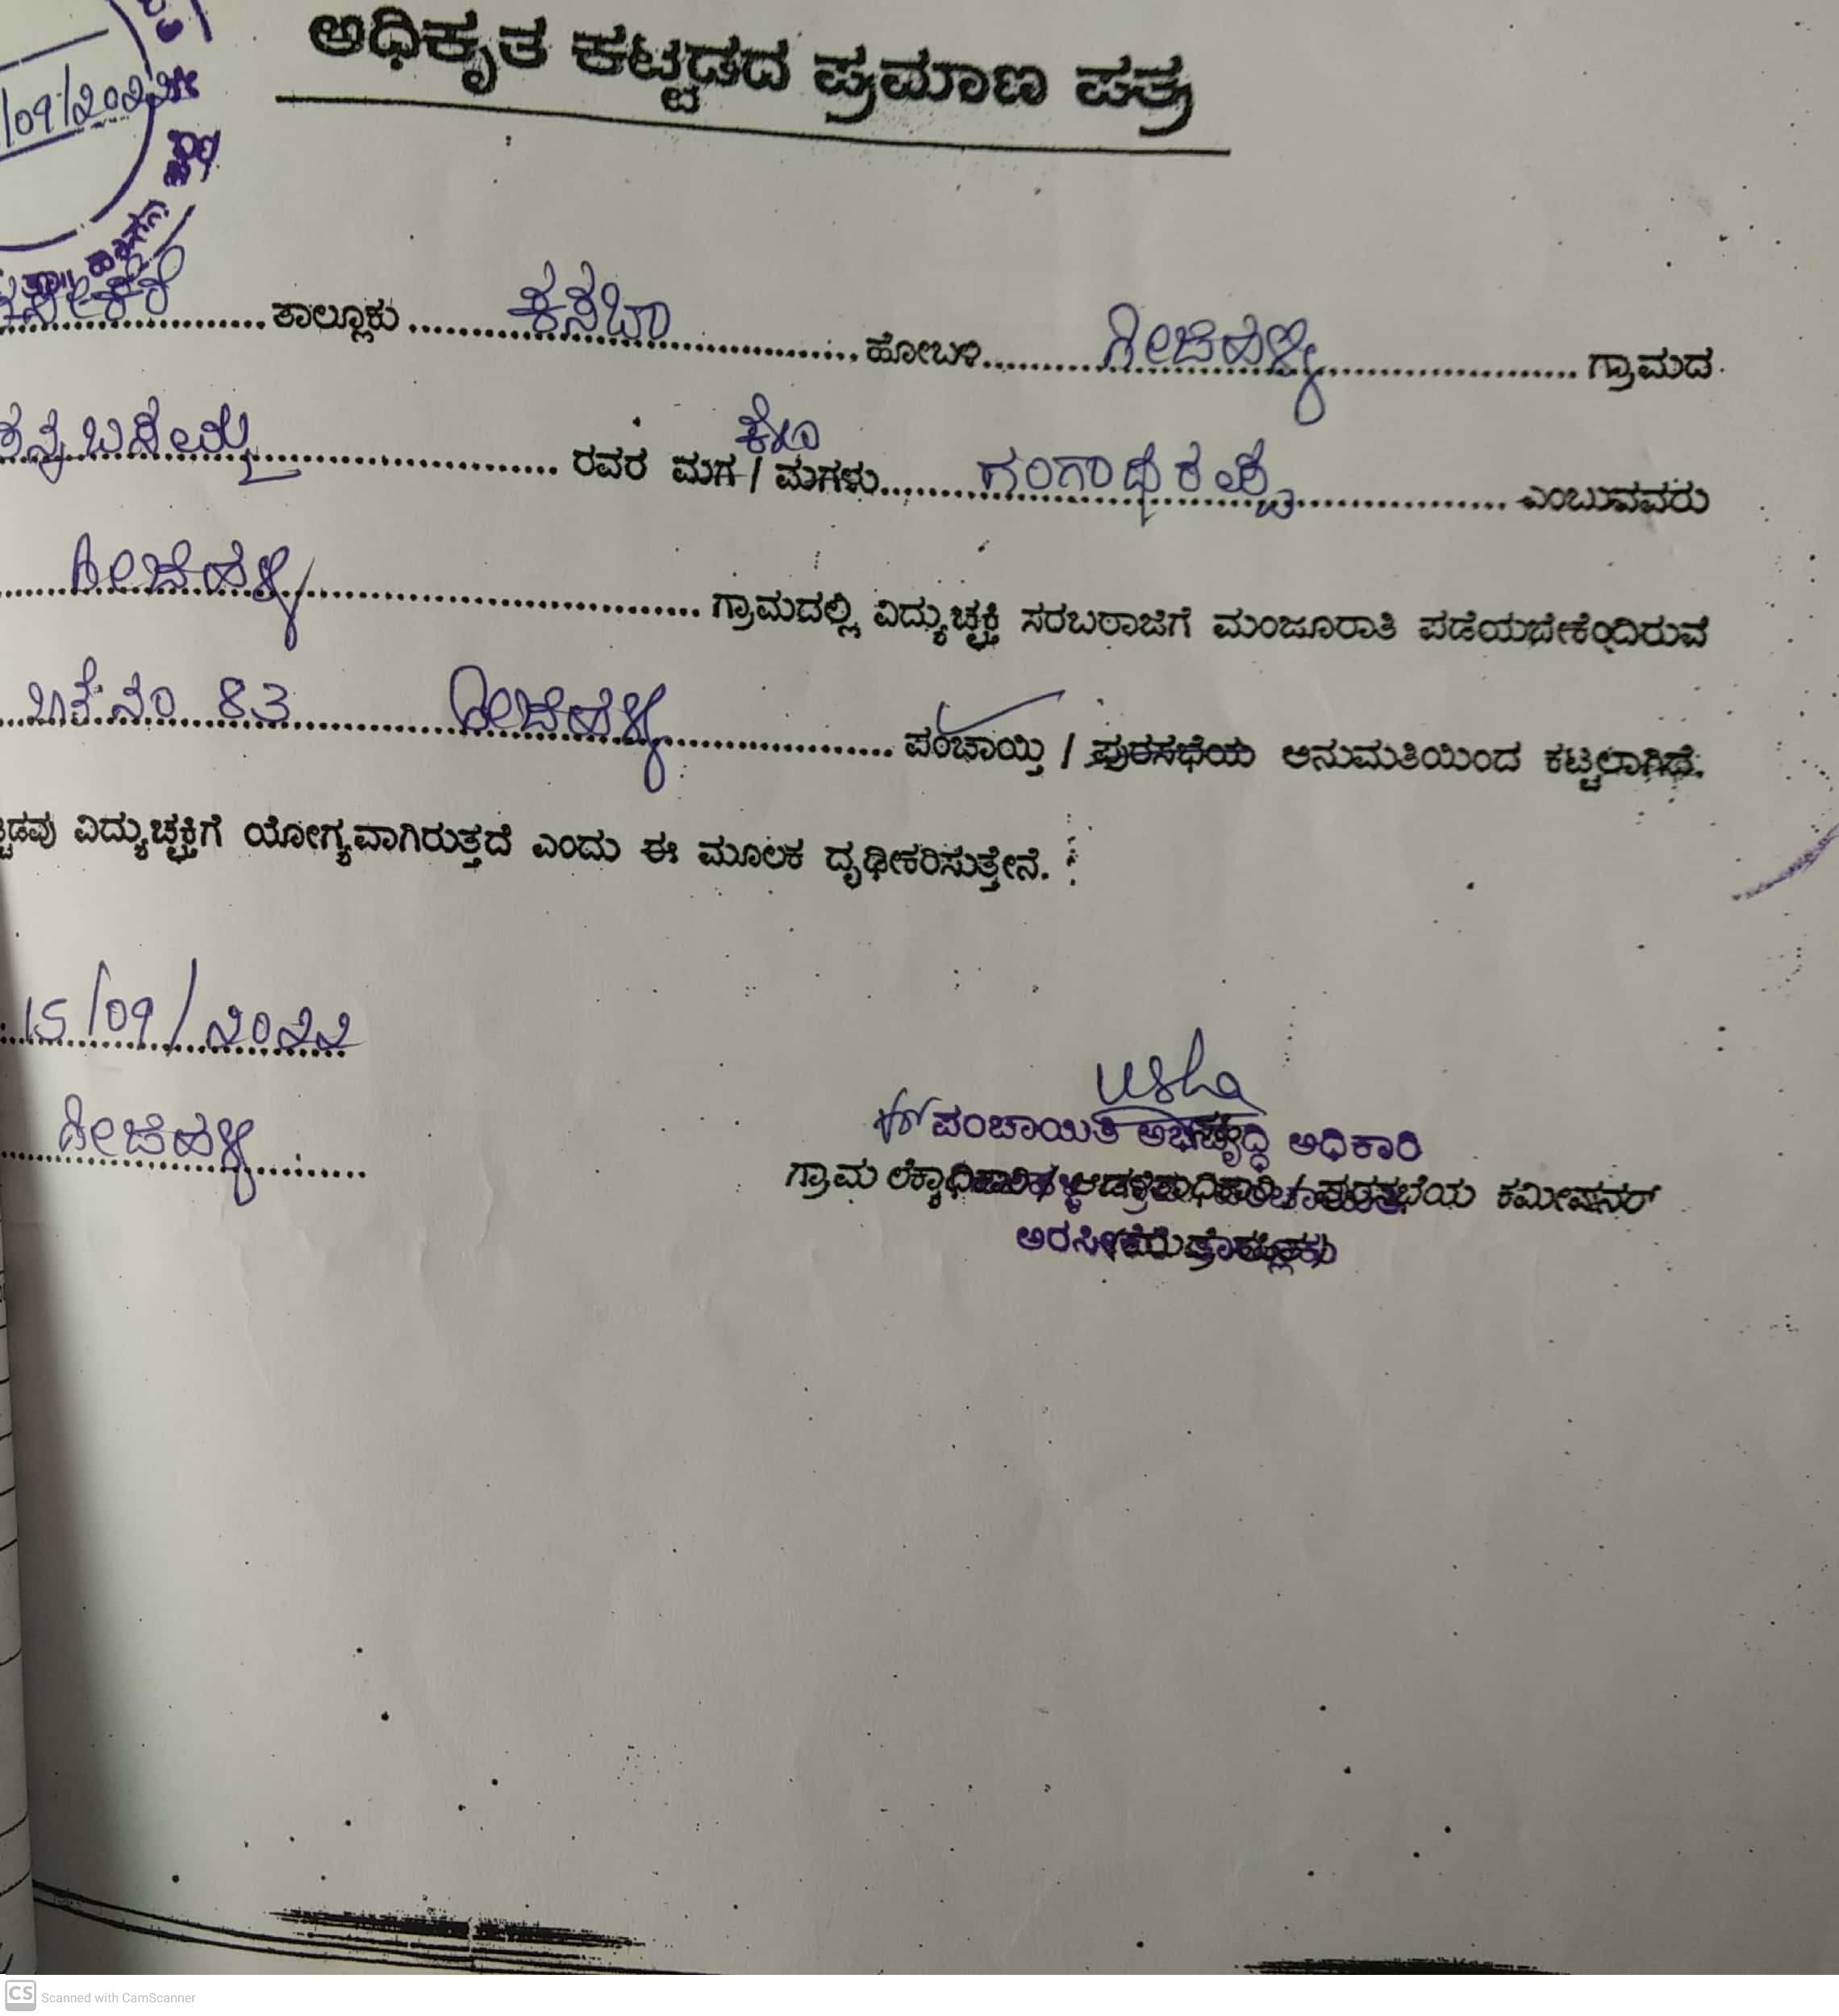 ಅಧಿಕೃತ ಕಟ್ಟಡದ ಪ್ರಮಾಣ ಪತ್ರ
/09/2022
ತಾಲ್ಲೂಕು ಕಸಬಾ ಹೋಬಳಿ ಗೀಜಿಹಳ್ಳಿ ಗ್ರಾಮದ
ರವರ ಮಗ / ಮಗಳು ಕೋಂ ಗಂಗಾಧರಪ್ಪ ಎಂಬುವವರು
ಗೀಜಿಹಳ್ಳಿ ಗ್ರಾಮದಲ್ಲಿ ವಿದ್ಯುಚ್ಛಕ್ತಿ ಸರಬರಾಜಿಗೆ ಮಂಜೂರಾತಿ ಪಡೆಯಬೇಕೆಂದಿರುವ
ಖಾತೆ ನಂ 83 ಗೀಜಿಹಳ್ಳಿ ಪಂಚಾಯ್ತಿ / ಪುರಸಭೆಯ ಅನುಮತಿಯಿಂದ ಕಟ್ಟಲಾಗಿದೆ.
ಟ್ಟಡವು ವಿದ್ಯುಚ್ಛಕ್ತಿಗೆ ಯೋಗ್ಯವಾಗಿರುತ್ತದೆ ಎಂದು ಈ ಮೂಲಕ ದೃಢೀಕರಿಸುತ್ತೇನೆ.
15/09/೨೦೨೨
ಗೀಜಿಹಳ್ಳಿ
Usha
ಪಂಚಾಯಿತಿ ಅಭಿವೃದ್ಧಿ ಅಧಿಕಾರಿ
ಗ್ರಾಮ ಪುರಸಭೆಯ ಕಮೀಷನರ್
ಅರಸೀಕೆರೆ ತಾಲ್ಲೂಕು
CS Scanned with CamScanner